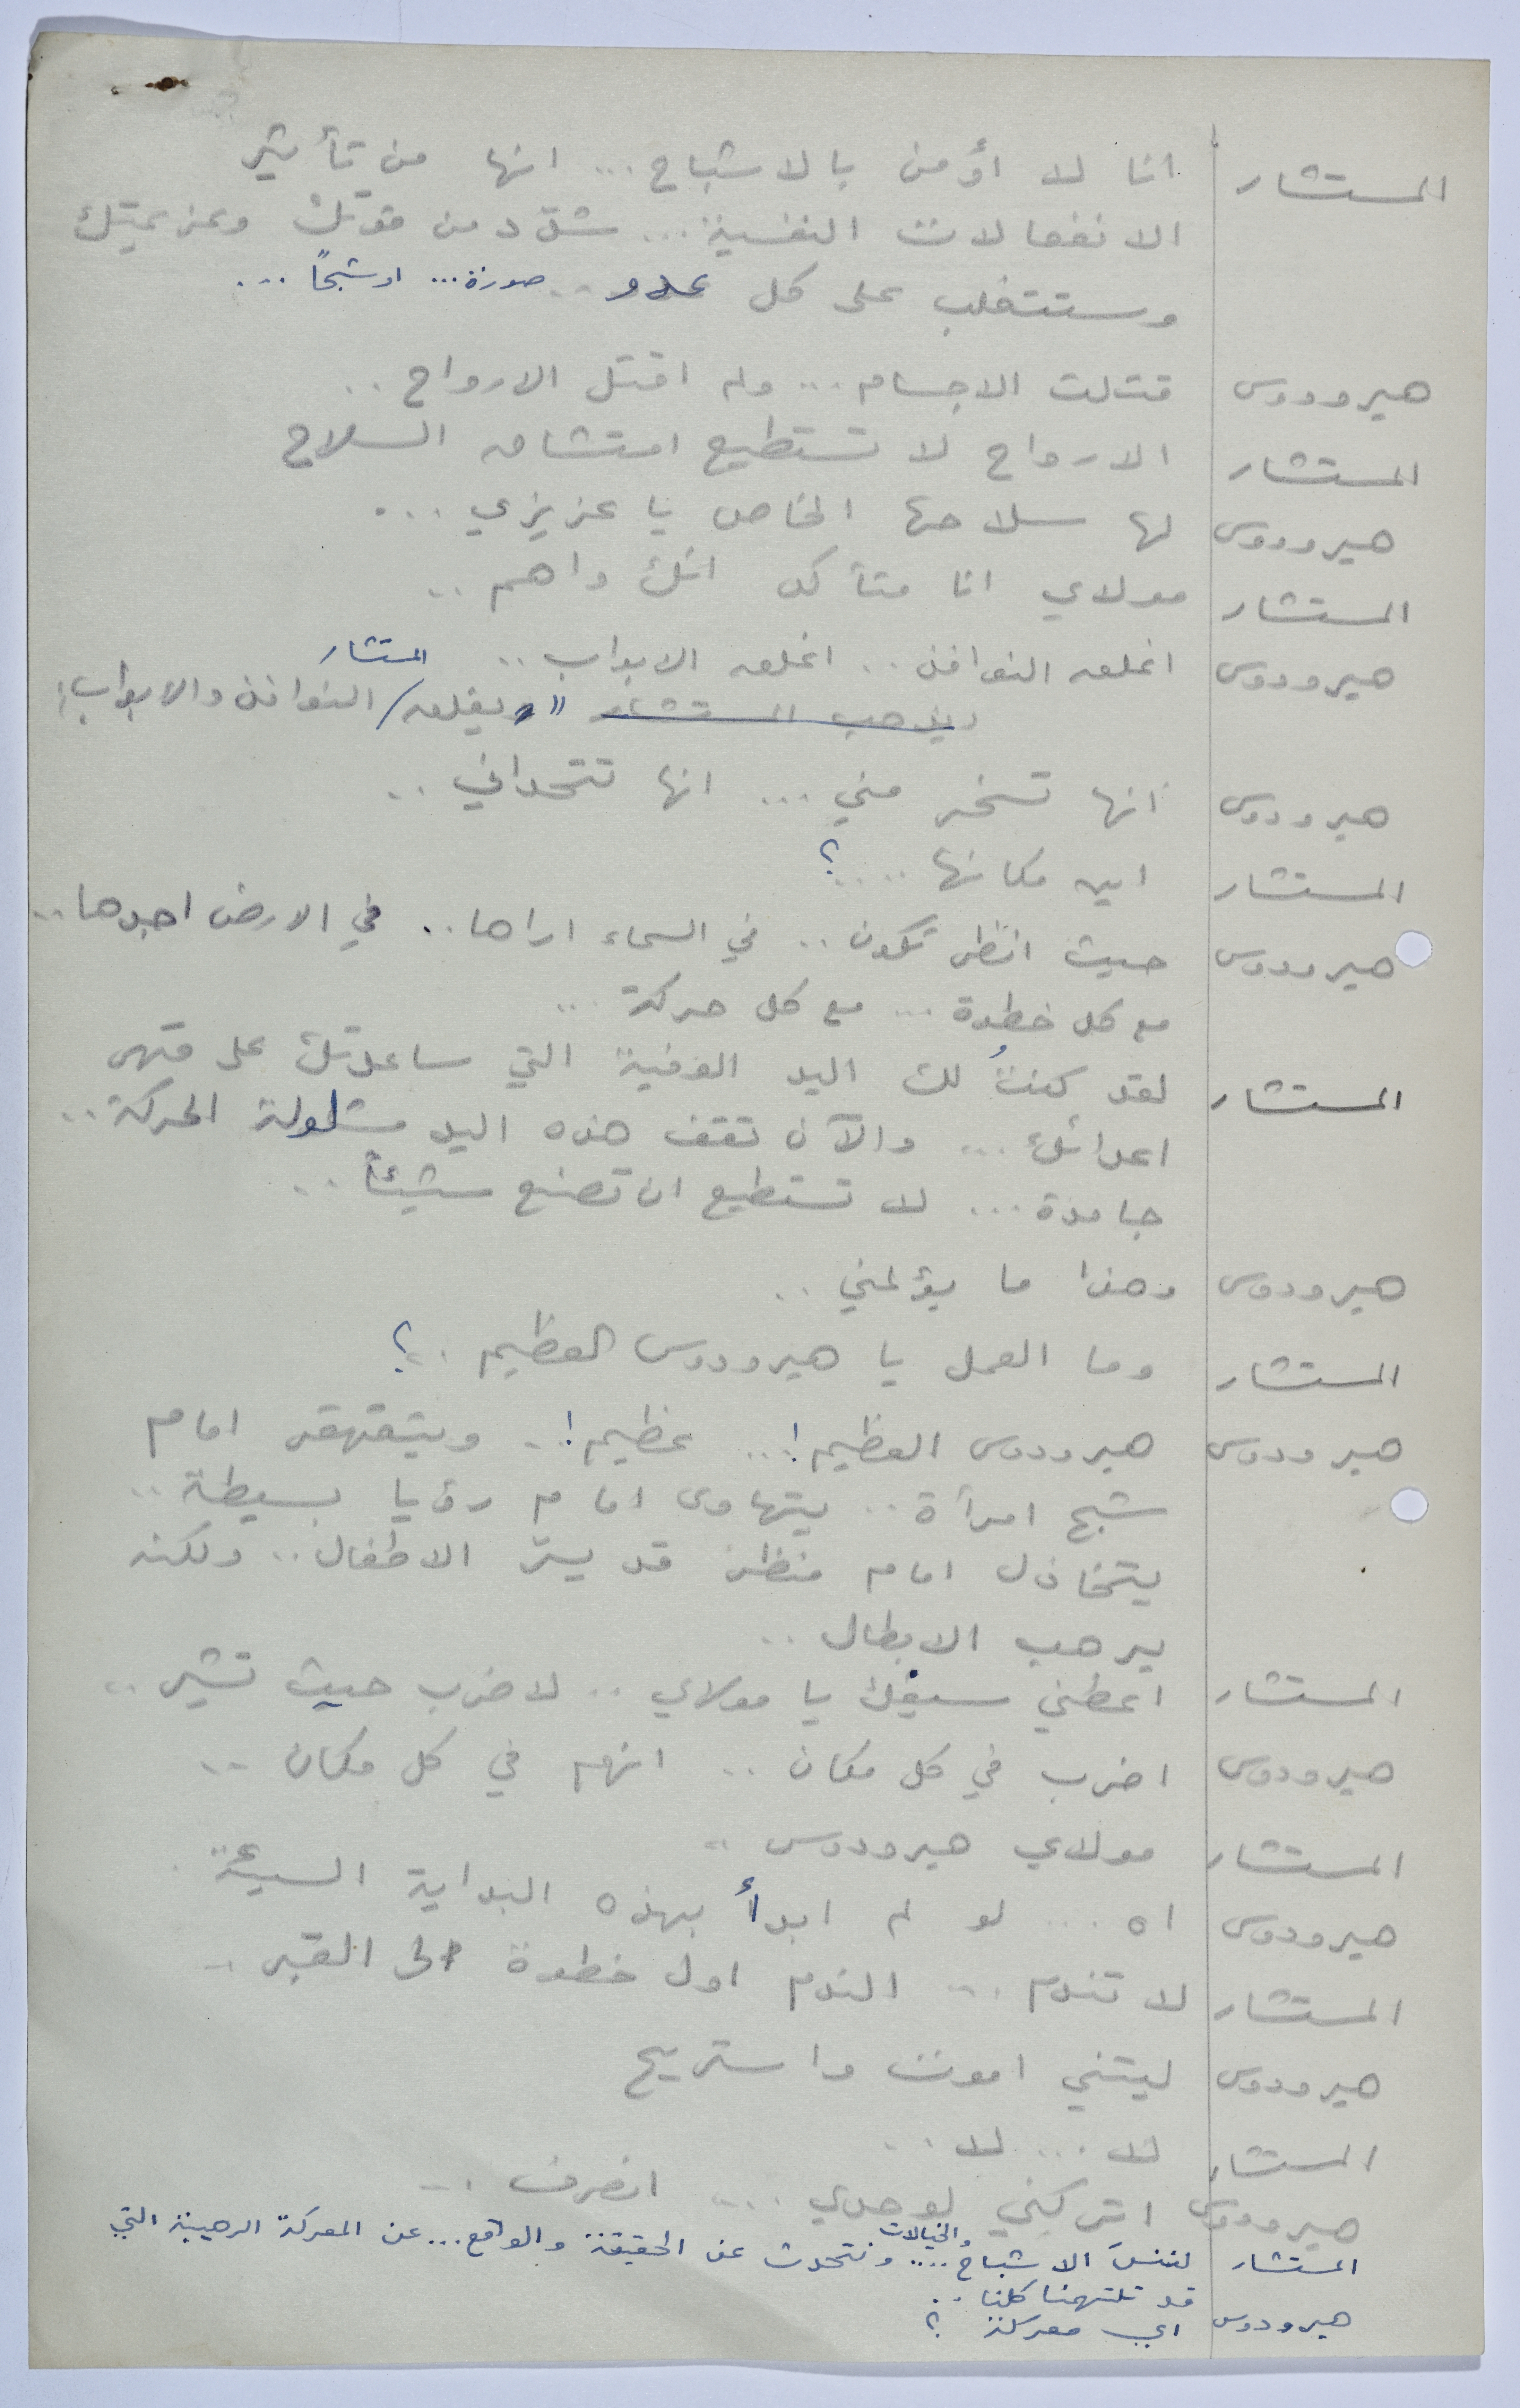 المستشار انا لا أؤمن بالاشباح ... انها من تأثير
الانفعالات النفسية ... شدّد من قوتك وعزيمتك
وستتغلب على كل عدو .. صورة ... او شبحاً ...
هيرودوس قتلت الاجسام ... ولم اقتل الارواح ..
المستشار الارواح لا تستطيع امتشاق السلاح
هيرودوس لها سلاحها الخاص يا عزيزي ...
المستشار مولاي انا متأكد انك واهم ..
هيرودوس اغلق النوافذ .. اغلق الابواب ..
المستشار
يذهب المستشار " يغلق / النوافذ والابواب "
هيرودوس انها تسخر مني ... انها تتحداني ..
المستشار اين مكانها .... ؟
هيرودوس حيث انظر تكون .. في السماء اراها .. في الارض اجدها ..
مع كل خطوة ... مع كل حركة ...
المستشار لقد كنتُ لك اليد القوية التي ساعدتك على قهر
اعدائك ... والآن تقف هذه اليد مشلولة الحركة ..
جامدة ... لا تستطيع ان تصنع شيئاً ..
هيرودوس وهذا ما يؤلمني ..
المستشار وما العمل يا هيرودوس العظيم .. ؟
هيرودوس هيرودوس العظيم ! .. عظيم ! .. ويتقهقر امام
شبح امرأة .. يتهاوى امام رؤيا بسيطة ..
يتخاذل امام منظر قد يسرّ الاطفال .. ولكنه
يرهب الابطال ..
المستشار اعطني سيفك يا مولاي .. لاضرب حيث تشير ..
هيرودوس اضرب في كل مكان .. انهم في كل مكان ..
المستشار مولاي هيرودوس ..
هيرودوس اه ... لو لم ابدأ بهذه البداية السيئة .
المستشار لا تندم ... الندم اول خطوة الى القبر ..
هيرودوس ليتني اموت واستريح
المستشار لا ... لا ..
هيرودوس اتركني لوحدي .... انصرف ..
والخيالات
المستشار لننسَ الاشباحُ .... ونتحدث عن الحقيقة والواقع ... عن المعركة الرهيبة التي
قد تلتهمنا كلنا ..
هيرودوس اي معركة ؟